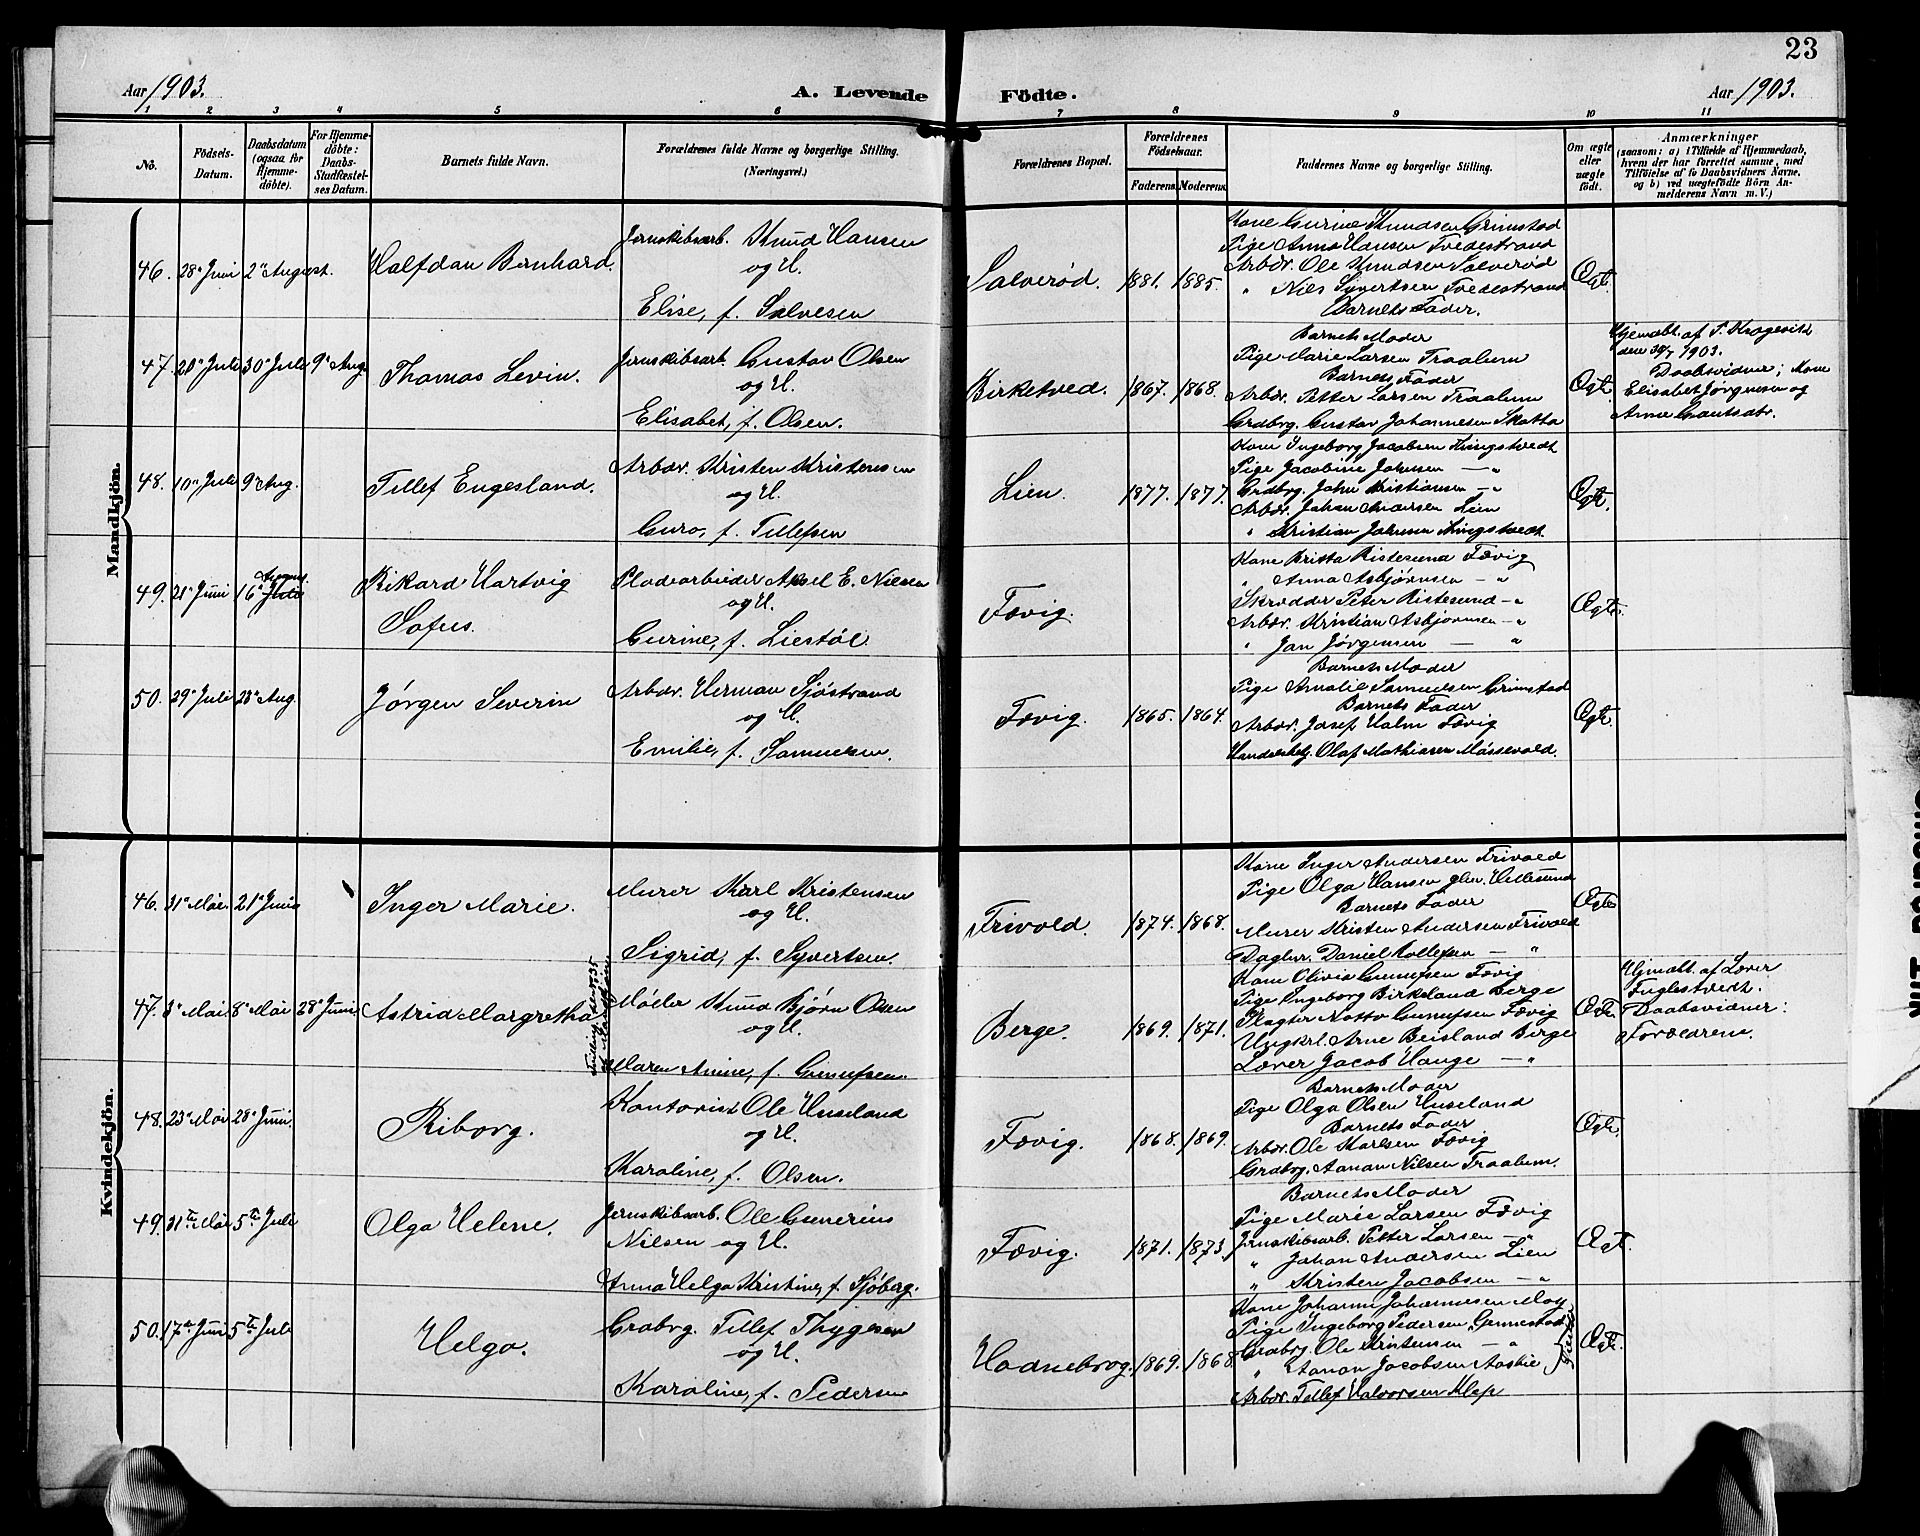 23
Aar 1903.
A. Levende
Födte.
Aar 1903.
1 2 3 4 5 6 7 8 9 10 11
No.
Födsels-
Datum.
Daabsdatum
(ogsaa for
Hjemme-
döbte).
For Hjemme-
döbte:
Daabs-
Stadfæstel-
ses Datum.
Barnets fulde Navn.
Forældrenes fulde Navne og borgerlige Stilling.
(Næringsvei.)
Forældrenes Bopæl.
Forældrenes
Födselsaar.
Faderens.
Moderens.
Faddernes Navne og borgerlige Stilling.
Om ægte
eller
uægte
födt.
Anmærkninger
(saasom: a) i Tilfælde af Hjemmedaab,
hvem der har forrettet samme, med
Tilföielse af to Daabsvidners Navne,
og b) ved uægtefödte Börn An-
melderens Navn m. V.)
Mandkjön.
46. 28' Juni 2' August. Halfdan Bernhard.
Jernskibsarb. Knud Hansen
og H.
Elise, f. Salvesen
Salverød. 1881. 1885.
Kone Gurine Knudsen Grimstad
Pige Anna Hansen Tvedestrand
Arbdr. Ole Knudsen Salverød
" Nils Syvertsen Tvedestrand
Barnets Fader.
Ægt.
47. 20' Juli 30' Juli 9' Aug. Thomas Levin.
Jernskibsarb. Gustav Olsen
og H.
Elisabet, f. Olsen.
Birketved. 1867. 1868.
Barnets Moder
Pige Marie Larsen Traalum
Barnets Fader
Arbdr. Petter Larsen Traalum
Grdbrg. Gustav Johannesen Skatta
Ægt.
Hjemdbt. af
den 30/7 1903.
Daabsvidner; Kone
Elisabet Jørgensen og
Anne
48. 10' Juli 9' Aug. Tellef Engesland.
Arbdr. Kristen Kristensen
og H.
Guro, f. Tellefsen
Lien. 1877. 1877.
Kone Ingeborg Jacobsen Ringstvedt
Pige Jacobine Johnsen — "
Grdbrg. John Kristiansen — "
Arbdr. Johan Andersen Lien
" Kristian Johnsen Ringstvedt
Ægt.
49. 21' Juni 16' August Juli Rikard Hartvig
Sofus.
Pladearbeider Aksel E. Nilsen
og H.
Gurine, f. Liestøl
Fævig.
Kone Britta Ristesund Fævig
" Anna Asbjørnsen — "
Skrædder Peter Ristesund — "
Arbdr. Kristian Asbjørnsen — "
" Jan Jørgensen — "
Ægte.
50. 29' Juli 23' Aug. Jørgen Severin
Arbdr. Herman Sjöstrand
og H.
Emilie, f. Samuelsen.
Fævig. 1865. 1864.
Barnets Moder
Pige Amalie Samuelsen Grimstad
Barnets Fader
Arbdr. Josef Holm Fævig
Olaf Mathiasen Mossevold.
Ægte.
Kvindekjön.
46. 31' Mai. 21' Juni Inger Marie.
Murer Karl Kristensen
og H.
Sigrid, f. Syvertsen.
Frivold. 1874. 1868.
Kone Inger Andersen Frivold
Pige Olga Hansen Hellesund
Barnets Fader
Murer Kristen Andersen Frivold
Daglnr. Daniel Rollefsen "
Ægte
47. 3' Mai 8' Mai 28' Juni Astrid Margretha
Møller Knud Bjørn Olsen
og H.
Maren Anine, f. Gunufsen.
Berge. 1869. 1871.
Kone Olivia Gunufsen Fævig
Pige Ingeborg Birkeland Berge
Notto Gunufsen Fævig
Ungkrl. Arne Beisland Berge
Lærer Jacob Hauge — "
Ægte.
Hjmdbt. af Lærer
Fuglestvedt.
Daabsvidner:
Forældrene.
48. 23' Mai 28' Juni. Riborg.
Kontorist Ole Huseland
og H.
Karoline, f. Olsen.
Fævig. 1868. 1869.
Barnets Moder
Pige Olga Olsen Huseland
Barnets Fader
Arbdr. Ole Karlsen Fævig
Grdbrg. Aanan Nilsen Traalum.
Ægte.
49. 31te Mai 5te Juli Olga Helene.
Jernskibsarb. Ole Gunerius
Nilsen og H.
Anna Helga Kristine, f. Sjöberg.
Fævig. 1871. 1873.
Barnets Moder
Pige Marie Larsen Fævig
Jernskibsarb. Petter Larsen — "
" Johan Andersen Lien
" Kristen Jacobsen — "
Ægt.
50. 17de Juni 5te Juli Helga.
Grdbrg. Tellef Thygesen
og H.
Karoline, f. Pedersen
Haanebrog. 1869. 1868.
Kone Johanne Johannesen Moy
Pige Ingeborg Pedersen Gunnestad
Grdbrg. Ole Kristensen — "
" Aanan Jacobsen Aaskie
Arbdr. Tellef Halvorsen Klep
Ægte.